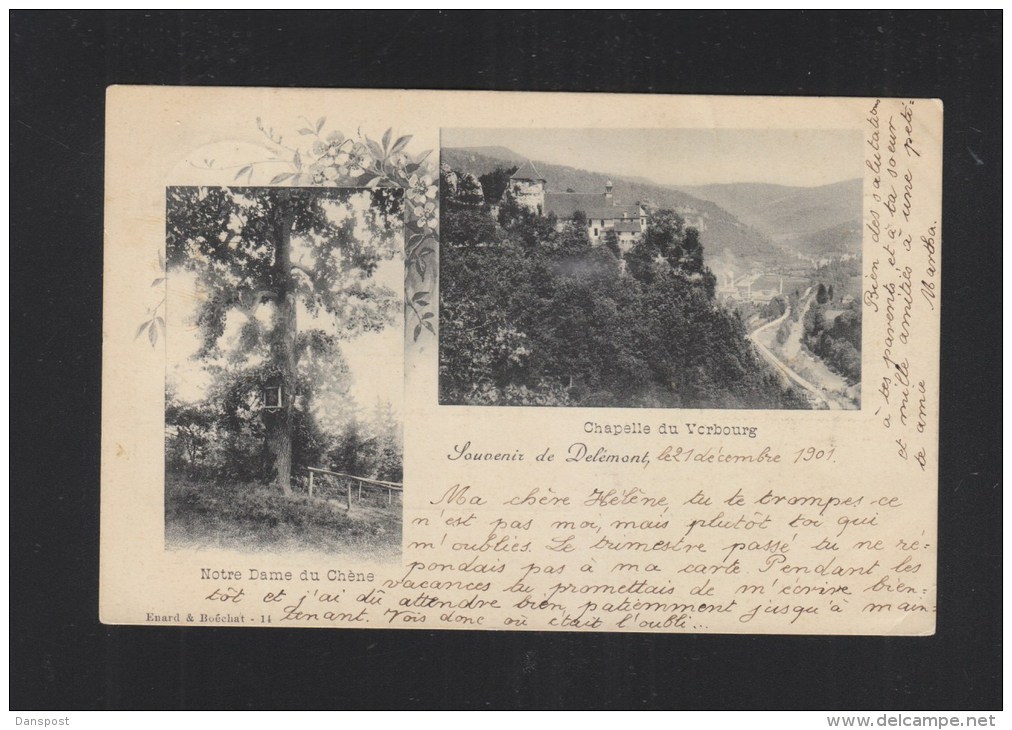 Chapelle du Vorbourg
Souvenir de Delémont, le 21 décembre 1901.
Ma chère Hélène, tu te trompes ce
n'est pas moi, mais plutôt toi qui
m'oublies. Le trimestre passé tu ne ré=
pondais pas à ma carte. Pendant les
vacances tu promettais de m'écrire bien=
tôt et j'ai dû attendre bien patiemment jusqu'à main=
tenant. Vois donc où était l'oubli...
Notre Dame du Chêne
Enard & Boéchat - 14
Bien des salutations
à tes parents et à ta soeur
et mille amitiés à une peti=
te amie Martha.
Danspost
www.delcampe.net